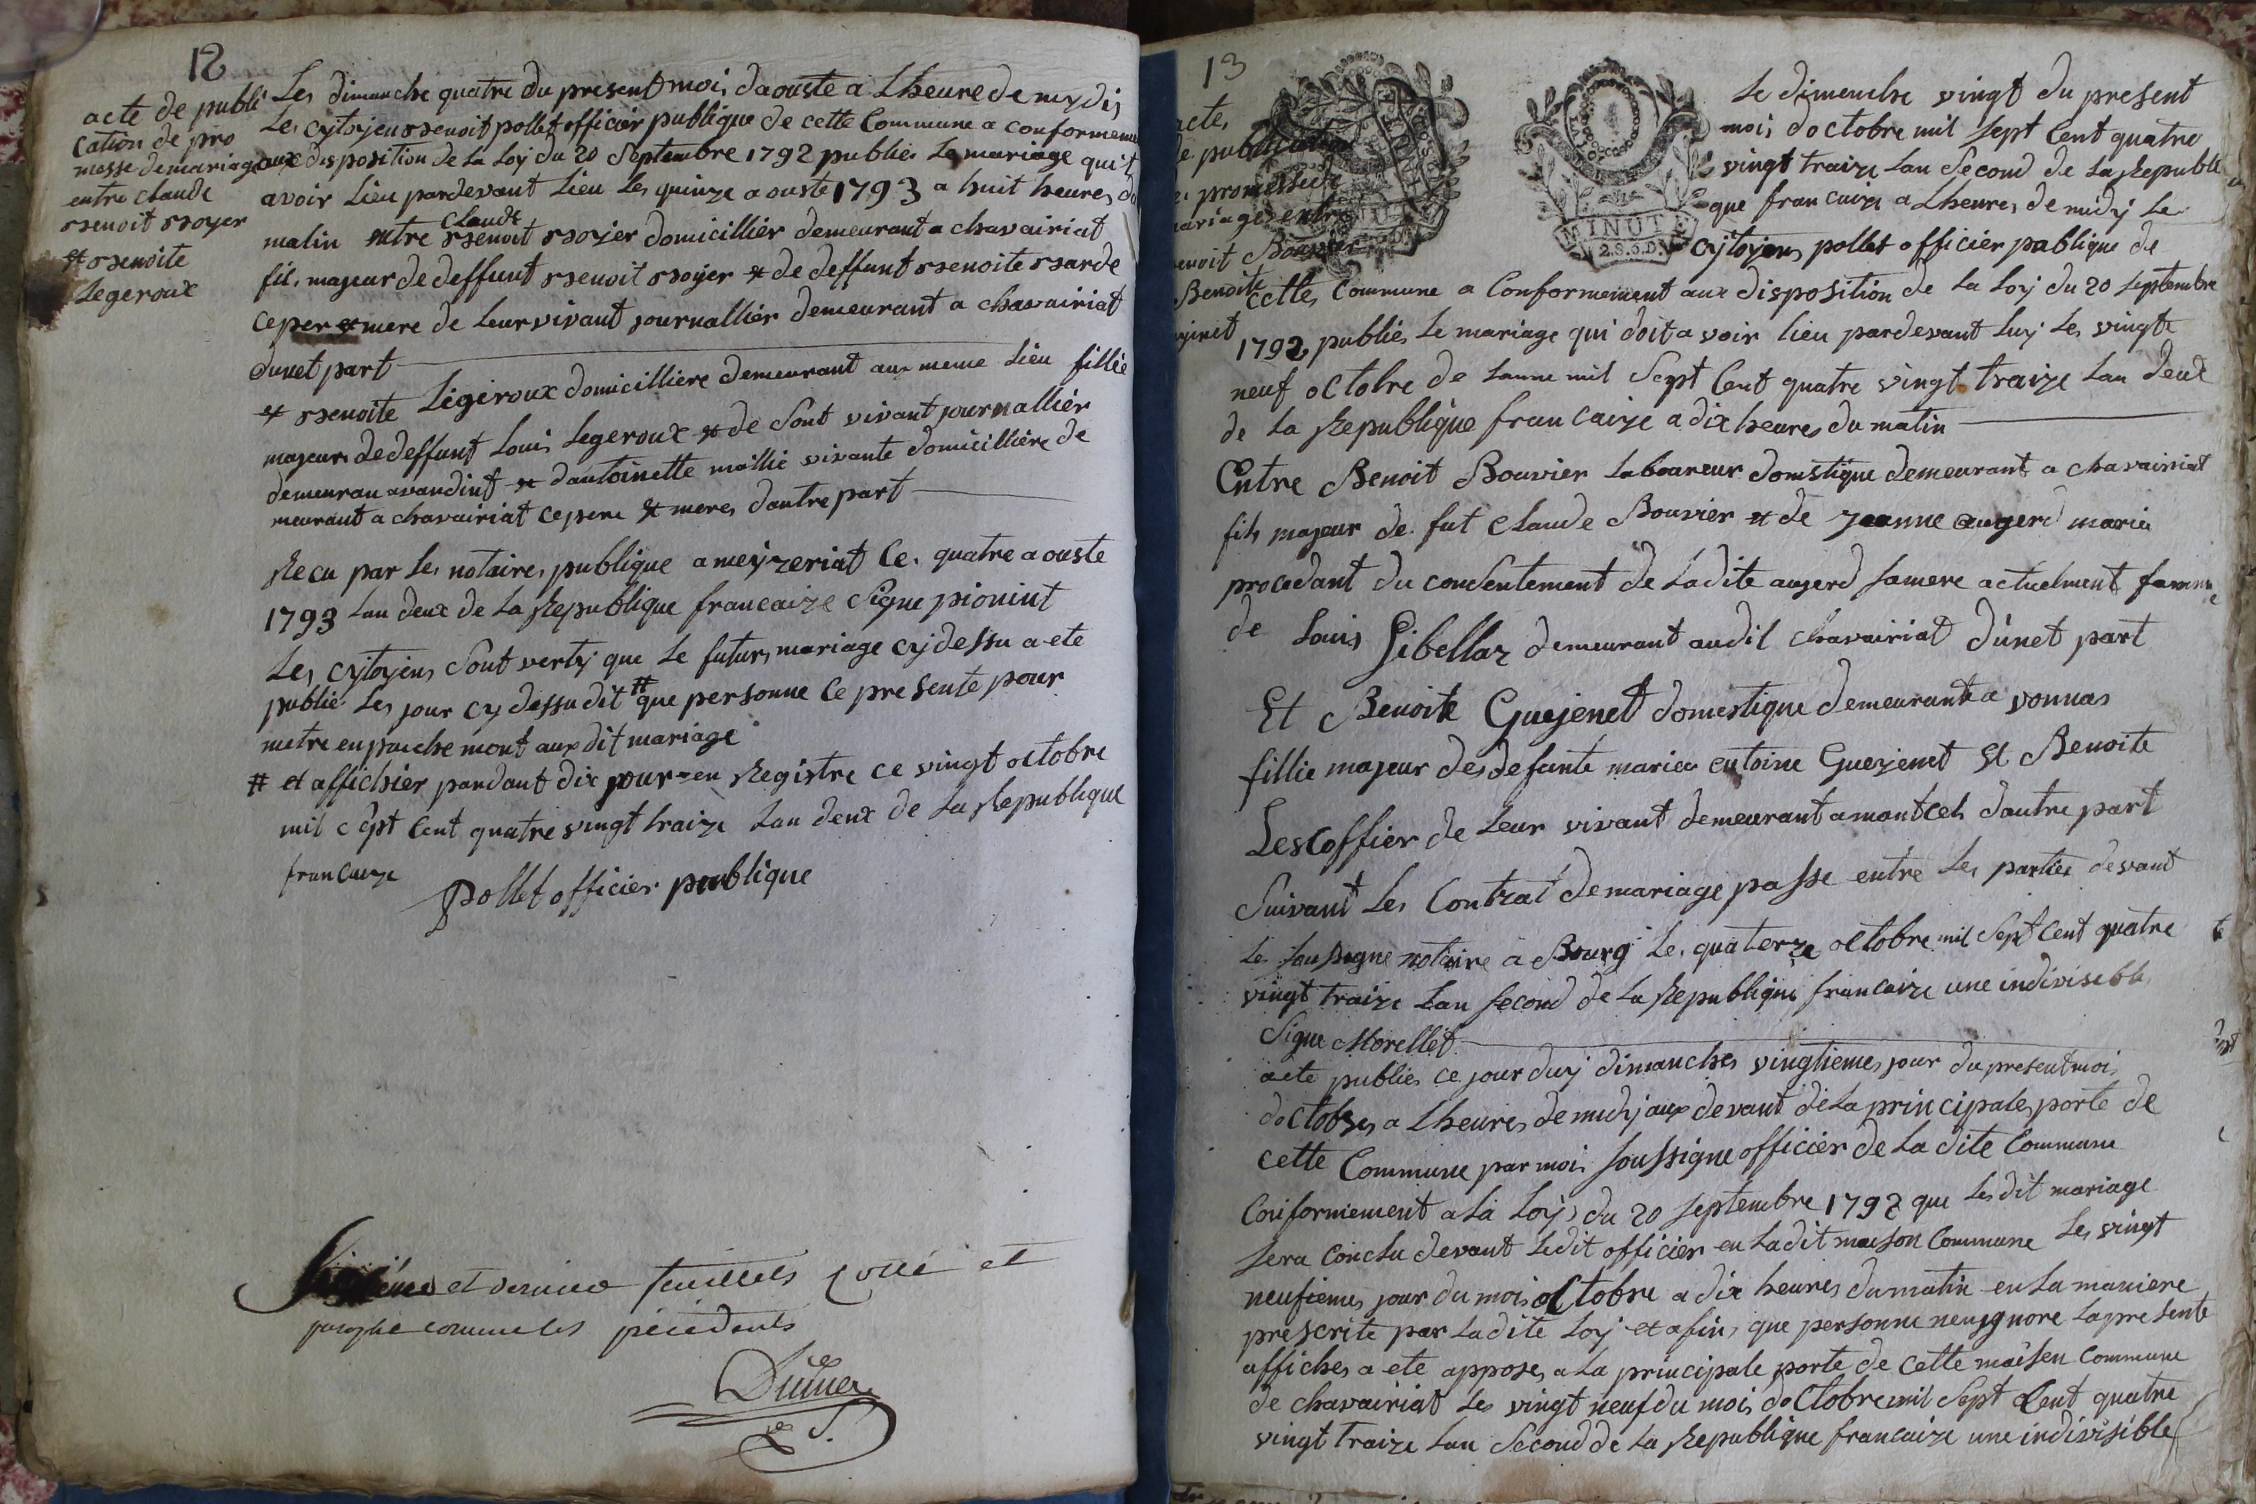 12
acte de publi
cation de pro
messe de mariage
entre claude
Benoit Boyer
et Benoite
Legeroux
Les dimanche quatre du present mois daouste a Lheure de mydis
Les cytoyen Benoit pollet officier publique de cette Commune a conformement
aux disposition de La Loy du 20 Septembre 1792 publiés Le mariage qui
avoir Lieu pardevant Lieu Les quinze aouste 1793 a huit heures du
claude
matin entre Benoit Boyer domicillier demeurant a chavairiat
fils majeur de deffunt Benoit Boyer et de deffunt Benoite Barde
ce per et mere de Leur vivant journallier demeurant a chavairiat
dunet part
et Benoite Legeroux domicilliere demeurant aux meme Lieu fillie
majeure de deffunt Louis Legeroux et de Sont vivant journallier
demeuran a vandint et dantoinette mallie vivante domicillière de
meurant a chavairiat ce pere et meres dautre part
Recu par Les notaires publique a meyzeriat Ce quatre aouste
1793 Lan deux de La Republique francaize Signe pionint
Les cytoyens Sont verty que Le futurs mariage cy dessu a ete
publie Les jour cy dessu dit # que personne Ce presente pour
metre en paiche mont aux dit mariage
# et affichier pandant dix jour en Registre ce vingt octobre
mil cept Cent quatre vingt traize Lan deux de La Republique
francaize
Pollet officier publique
et dernier feuillets cotté et
paraphe comme les précédents
13
acte
de publication
de promesse de
mariage entre
Benoit Bouvier
Benoite
MINUTE
2.S.6.D.
Le dimenche vingt du present
mois doctobre mil Sept Cent quatre
vingt traize Lan Second de La Republi
que francaize a Lheures de midy Le
Cytoyens pollet officier publique de
cette Commune a Conformement aux disposition de La Loy du 20 Septembre
1792 publiés Le mariage qui doit avoir lieu pardevant Luy Les vingte
neuf octobre de Lanne mil Sept Cent quatre vingt traize Lan deux
de La Republique francaize a dix heures du matin
Entre Benoit Bouvier Laboureur domstique demeurant a chavairiat
fils majeur de fut Claude Bouvier et de jeanne augerd maries
procedant du consentement de Ladite augerd Samere actuelment famme
de Louis Gibellaz demeurant audil chavairiat dunet part
Et Benoite Guejenet domestique demeurante a vonnas
fillie majeur des defunte maries entoine Guejenet Et Benoite
Lescoffier de Leur vivant demeurant amontcel dautre part
Suivant Les Contrat de mariage passe entre Les parties devant
Le Soussigne notaire a Bourg Le quatorze octobre mil Sept Cent quatre
vingt traize Lan Second de La Republique francaize une indivisible
Signe Morellet
acte publies ce jour duy dimanches vingtiemes jour du present mois
doctobres a Lheures de midy aux devant de La principales porte de
cette Commune par moi Soussigne officier de La dite Commune
Conformement a La Loys du 20 Septembre 1792 que Les dit mariage
Sera conclu devant Ledit officier en La dit maison Commune Les vingt
neufiemes jour du mois octobre a dix heures du matin en La maniere
prescrite par Ladite Loy et afin que personne neu ignore La presente
affiches a ete apposes a La principale porte de cette maisen Commune
de chavairiat Les vingt neuf du mois doctobre mil Sept Cent quatre
vingt traize Lan Second de La Republique francaize une indivisible